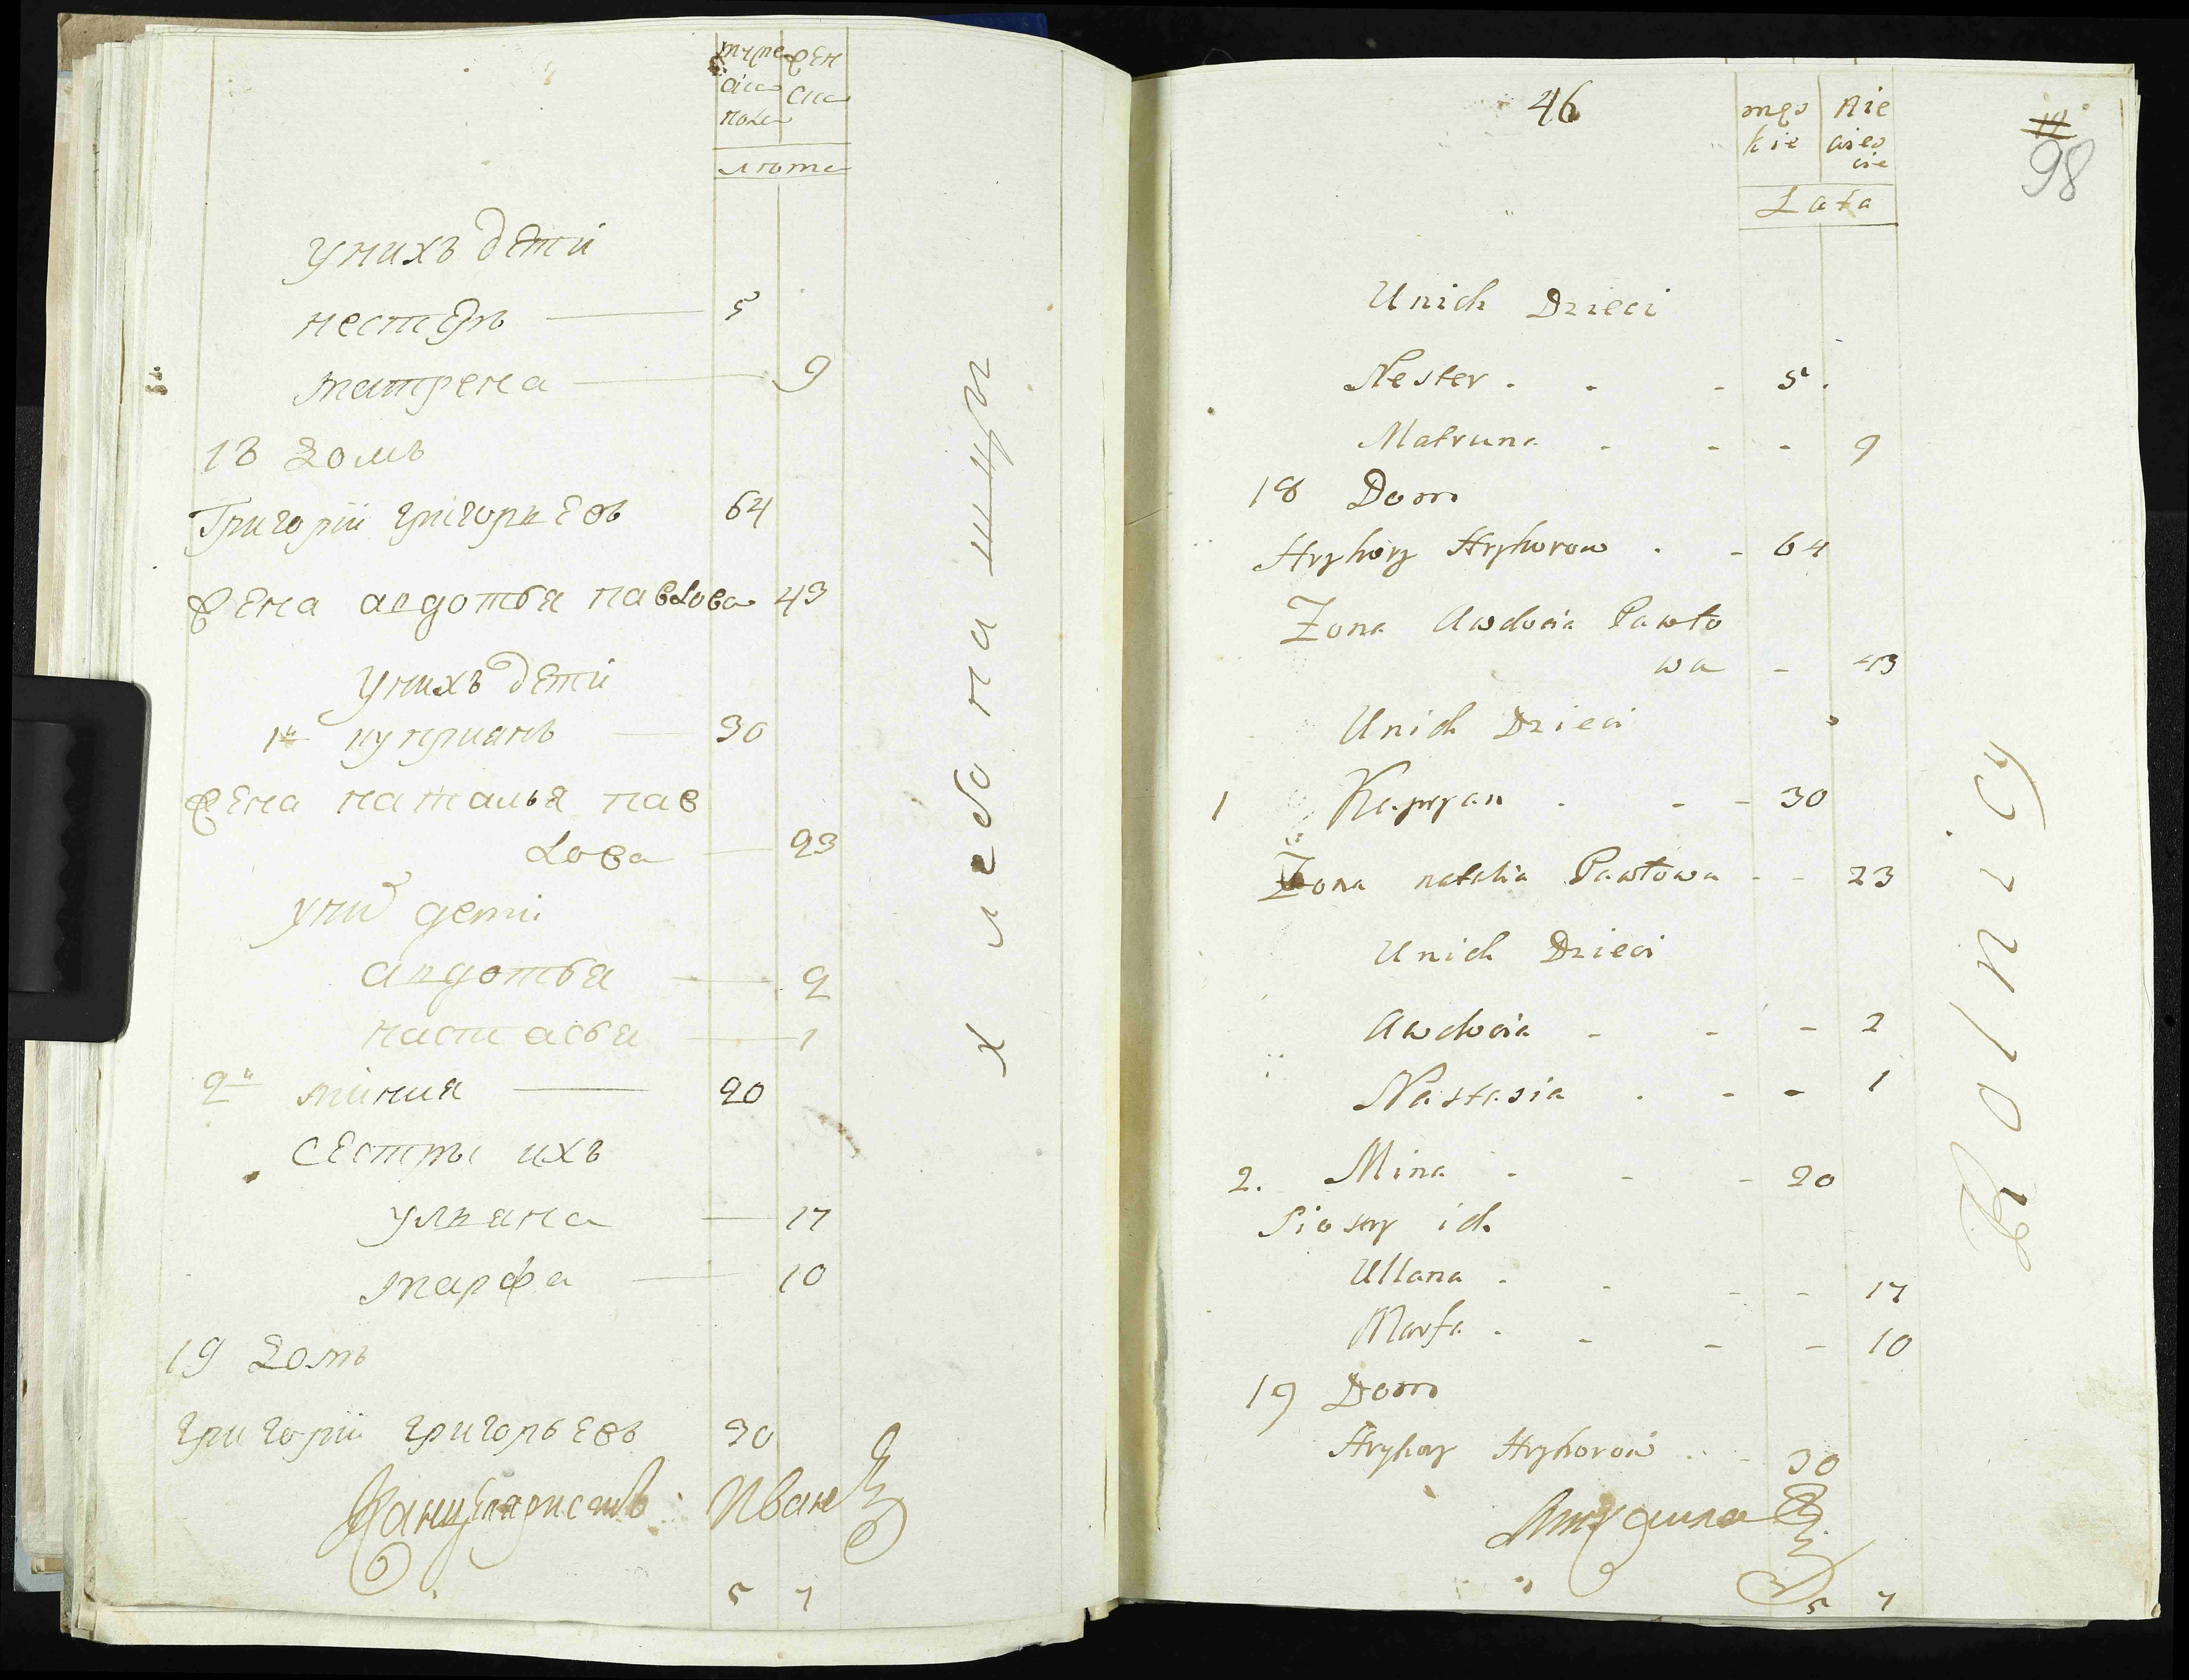 муже жен
ска ска
пола
лета
у них дети
нестеръ 5
матрена 9
18 домъ
Григорій григорьевъ 64
жена авдотья павлова 43
у них дети
1й куприанъ 30
жена наталья пав
лова 23
у них дети
авдотья 2
настасья 1
2й миния 20
сестры ихъ
ульяна 17
марфа 10
19 домъ
григорій григорьевъ 30
Канцеляристъ Иван
5 7
хлебопашцы
46
męs nie
kie wies
cie
Lata
98
Unich Dzieci
Nester 5
Matruna 9
18 Dom
Hryhory Hryhorow 64
Zona Awdocia Pawło
wa 43
Unich Dzieci
1 Kapryan 30
Zona natalia Pawłowa 23
Unich Dzieci
Awdocia 2
Nastasia 1
2. Mina 20
Siostry ich
Ullana 17
Marfa 10
19 Dom
Hryhory Hryhorow 30
5 7
Rolnicy